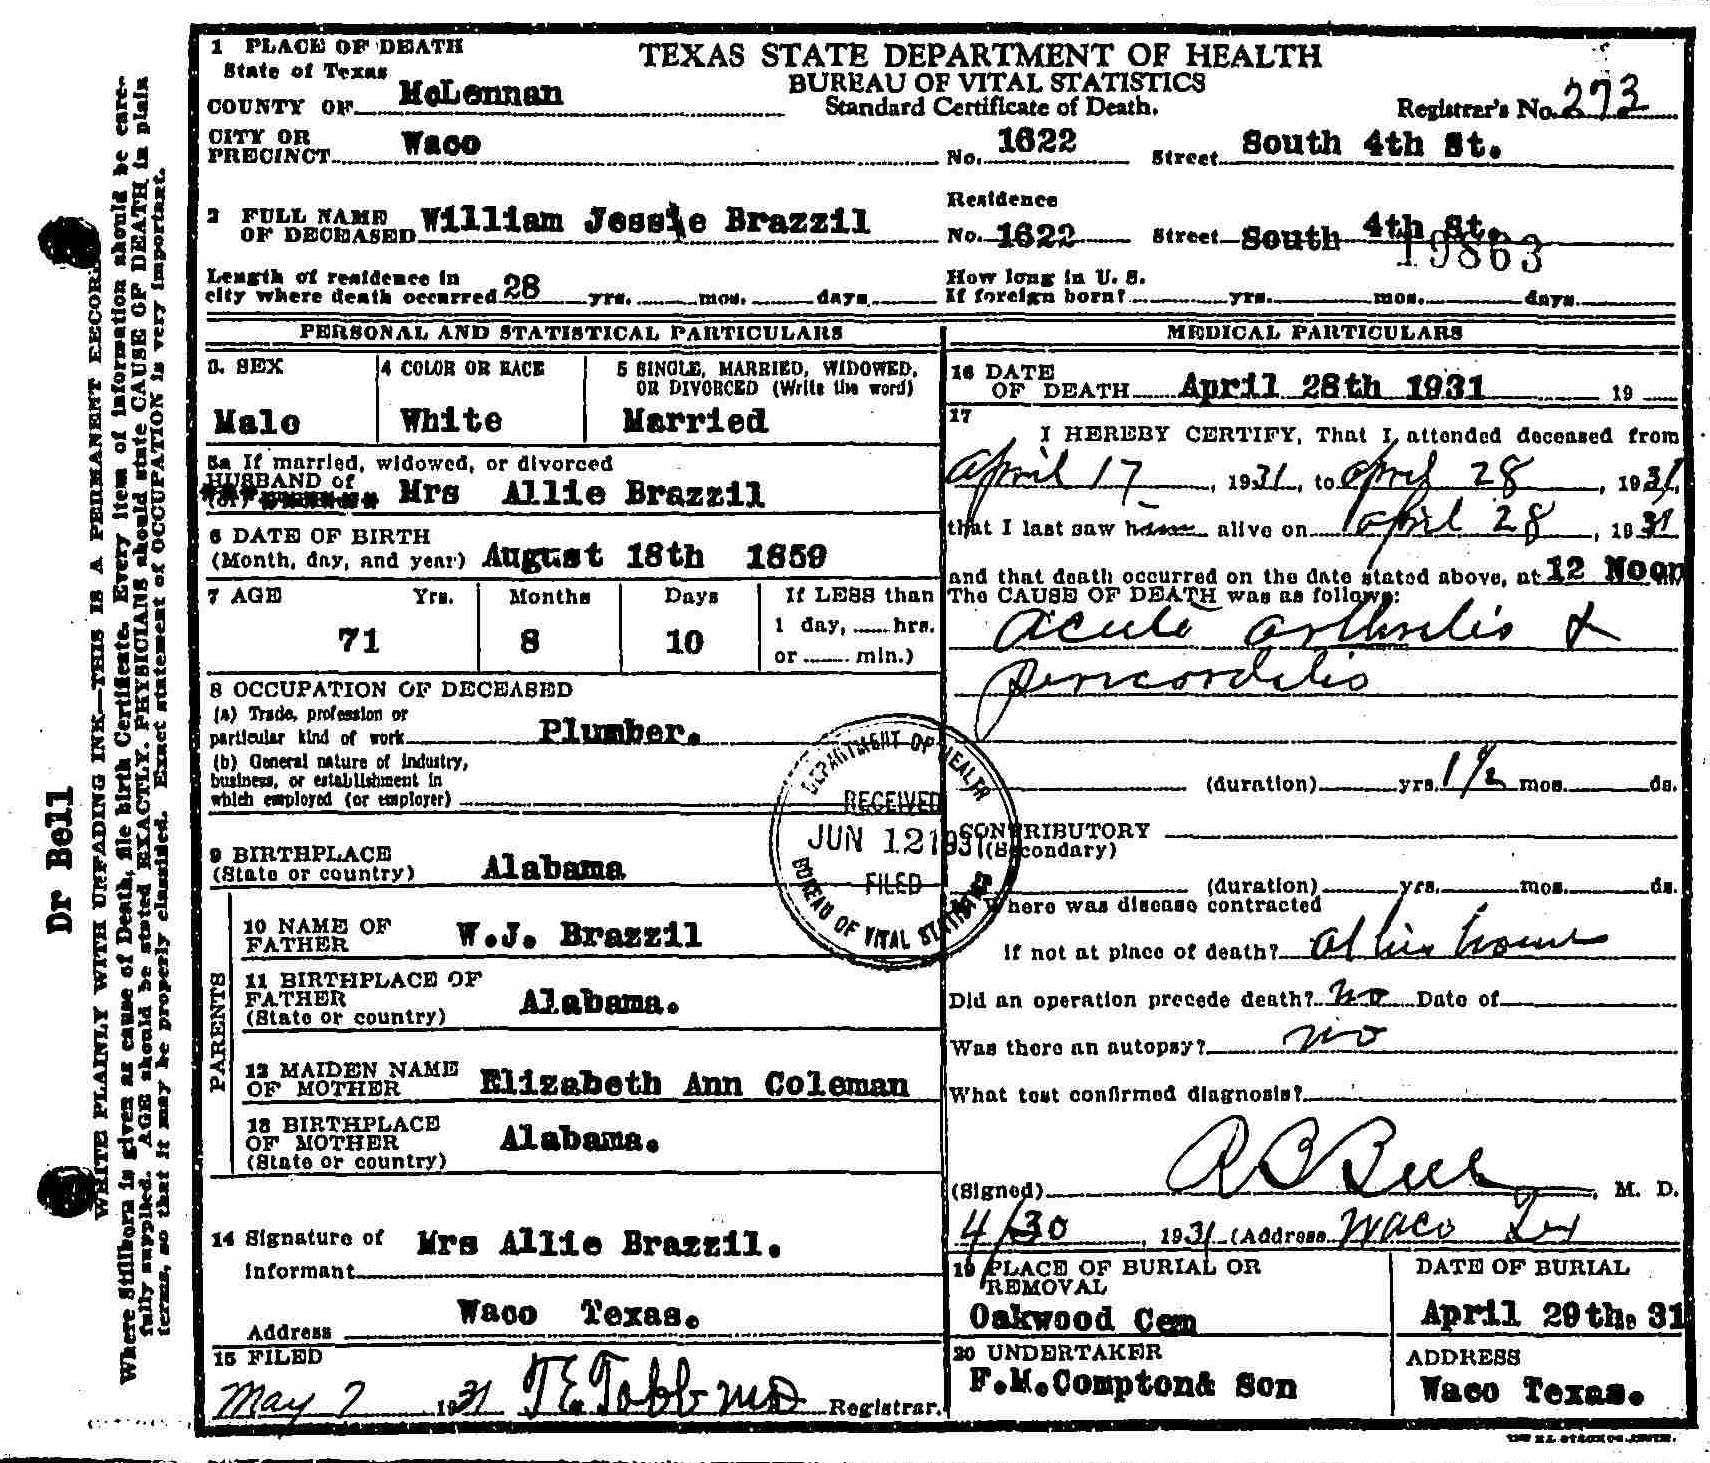 1 PLACE OF DEATH
State of Texas
COUNTY OF McLennan
CITY OR
PRECINCT Waco
TEXAS STATE DEPARTMENT OF HEALTH
BUREAU OF VITAL STATISTICS
Standard Certificate of Death.
Registrer's No. 273
No. 1622 Street South 4th St.
2 FULL NAME
OF DECEASED William Jessie Brazzil
Residence
No. 1622 Street South 4th St.
19863
Length of residence in
city where death occurred 28 yrs. mos. days
How long in U. S.
If foreign born? yrs. mos. days.
PERSONAL AND STATISTICAL PARTICULARS
3. SEX
Male
4 COLOR OR RACE
White
5 SINGLE, MARRIED, WIDOWED,
OR DIVORCED (Write the word)
Married
5a If married, widowed, or divorced
HUSBAND of
(or) Mrs Allie Brazzil
6 DATE OF BIRTH
(Month, day, and year) August 18th 1859
7 AGE Yrs. Months Days If LESS than
71 8 10 1 day, hrs.
or min.)
8 OCCUPATION OF DECEASED
(a) Trade, profession or
particular kind of work Plumber.
(b) General nature of industry,
business, or establishment in
which employed (or employer)
9 BIRTHPLACE
(State or country) Alabama
PARENTS
10 NAME OF
FATHER W.J. Brazzil
11 BIRTHPLACE OF
FATHER
(State or country) Alabama.
12 MAIDEN NAME
OF MOTHER Elizabeth Ann Coleman
13 BIRTHPLACE
OF MOTHER
(State or country) Alabama.
14 Signature of
Informant Mrs Allie Brazzil.
Address Waco Texas.
15 FILED
May 7 1931 T.E. Tabb MD Registrar.
DEPARTMENT OF HEALTH
RECEIVED
JUN 12 1931
FILED
BUREAU OF VITAL STATISTICS
MEDICAL PARTICULARS
16 DATE
OF DEATH April 28th 1931 19
17
I HEREBY CERTIFY, That I attended deceased from
April 17, 1931, to April 28, 1931,
that I last saw him alive on April 28, 1931
and that death occurred on the date stated above, at 12 Noon
The CAUSE OF DEATH was as follows:
Acute arthritis &
pericarditis
(duration) yrs. 1 1/2 mos. ds.
CONTRIBUTORY
(Secondary)
(duration) yrs. mos. ds.
Where was disease contracted
If not at place of death? At his home
Did an operation precede death? no Date of
Was there an autopsy? no
What test confirmed diagnosis?
(Signed) R B Bell, M. D.
4/30, 1931 (Address Waco Tex
19 PLACE OF BURIAL OR
REMOVAL
Oakwood Cem
DATE OF BURIAL
April 29th. 31
20 UNDERTAKER
F.M.Compton& Son
ADDRESS
Waco Texas.
Dr Bell
WRITE PLAINLY WITH UNFADING INK—THIS IS A PERMANENT RECORD
Where Stillborn is given as cause of Death, file birth Certificate. Every item of information should be care-
fully supplied. AGE should be stated EXACTLY. PHYSICIANS should state CAUSE OF DEATH in plain
terms, so that it may be properly classified. Exact statement of OCCUPATION is very important.